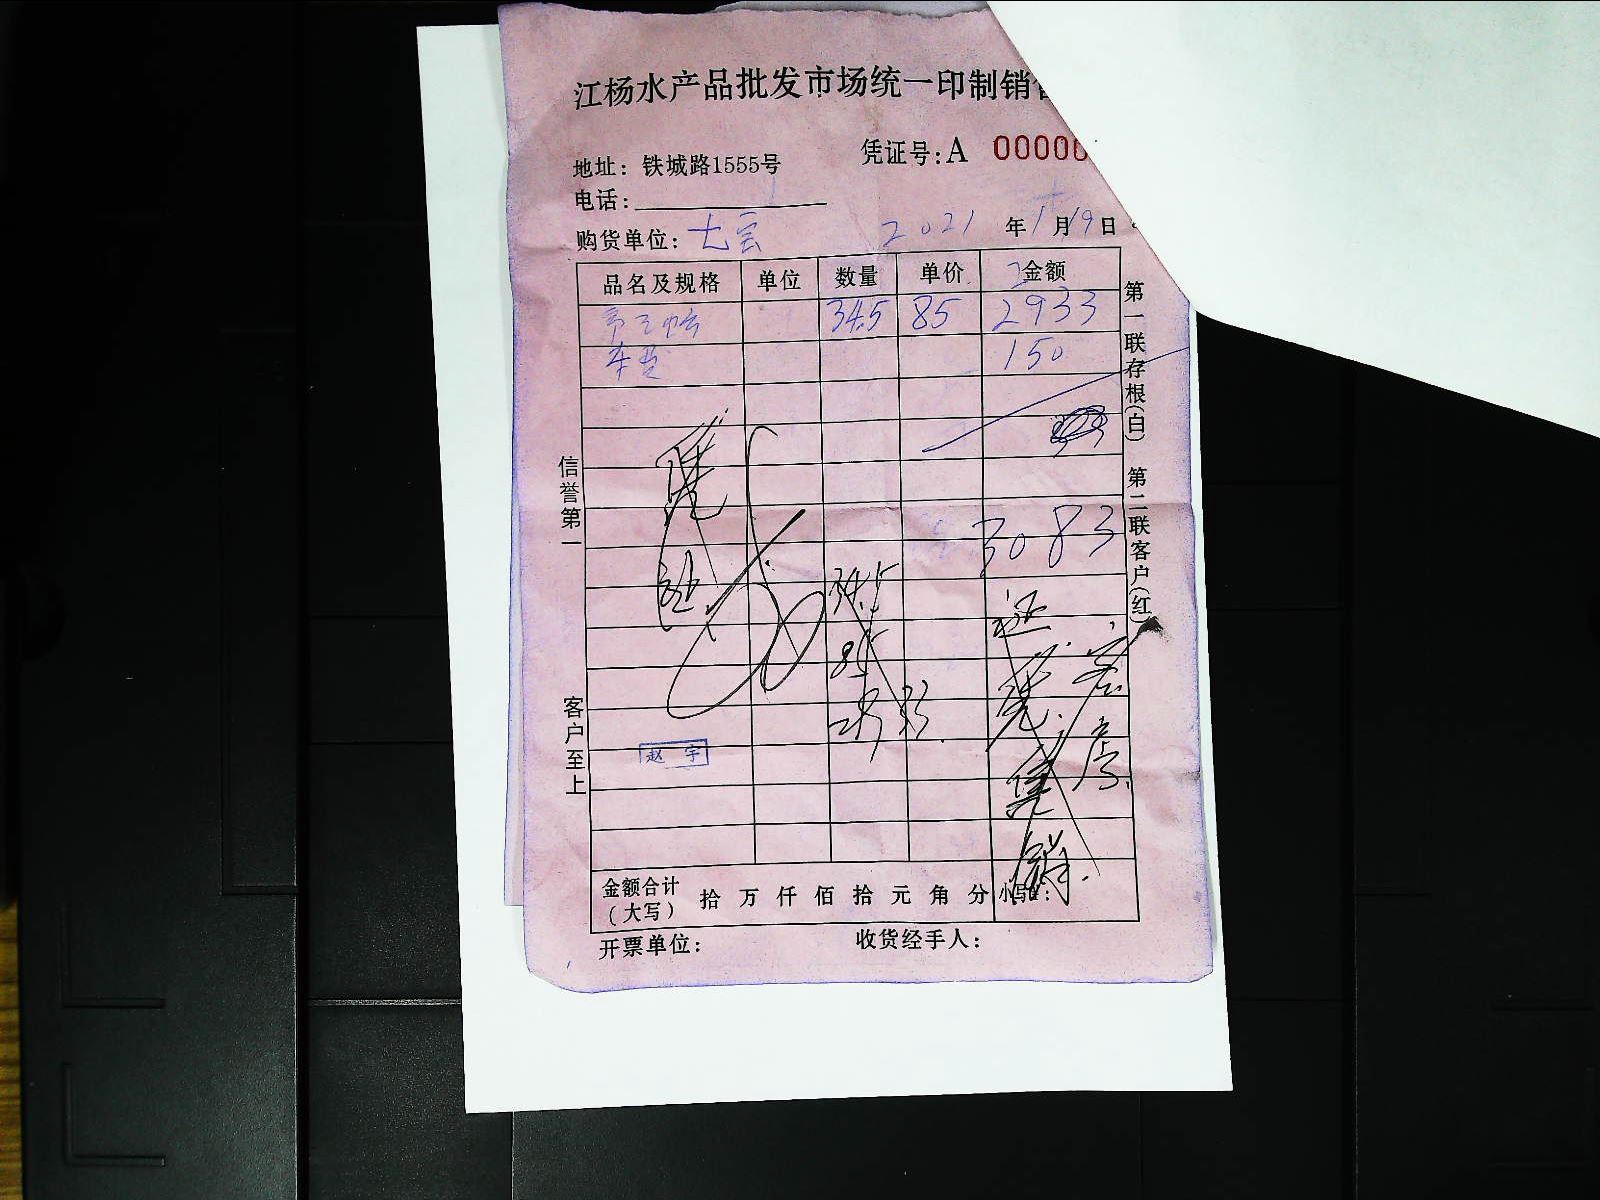 江杨水产品批发市场统一印制销
凭证号:A 00000
地址：铁城路1555号
电话：
购货单位： 2021 年1月19日
品名及规格 单位 数量 单价 金额
34.5 85 2933
车费 150
3083
34.5
85
信誉第一
客户至上
第一联存根(白)
第二联客户(红)
赵宇
金额合计（大写） 拾 万 仟 佰 拾 元 角 分 小写:
开票单位： 收货经手人：